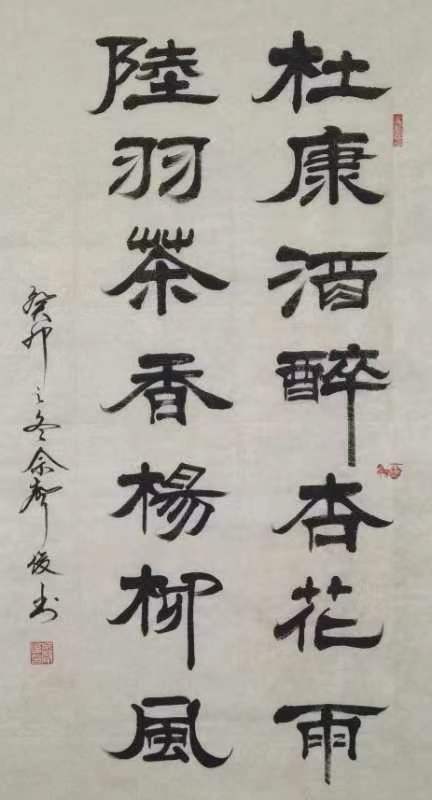 杜康酒醉杏花雨
陸羽茶香楊柳風
癸卯之冬余春俊书